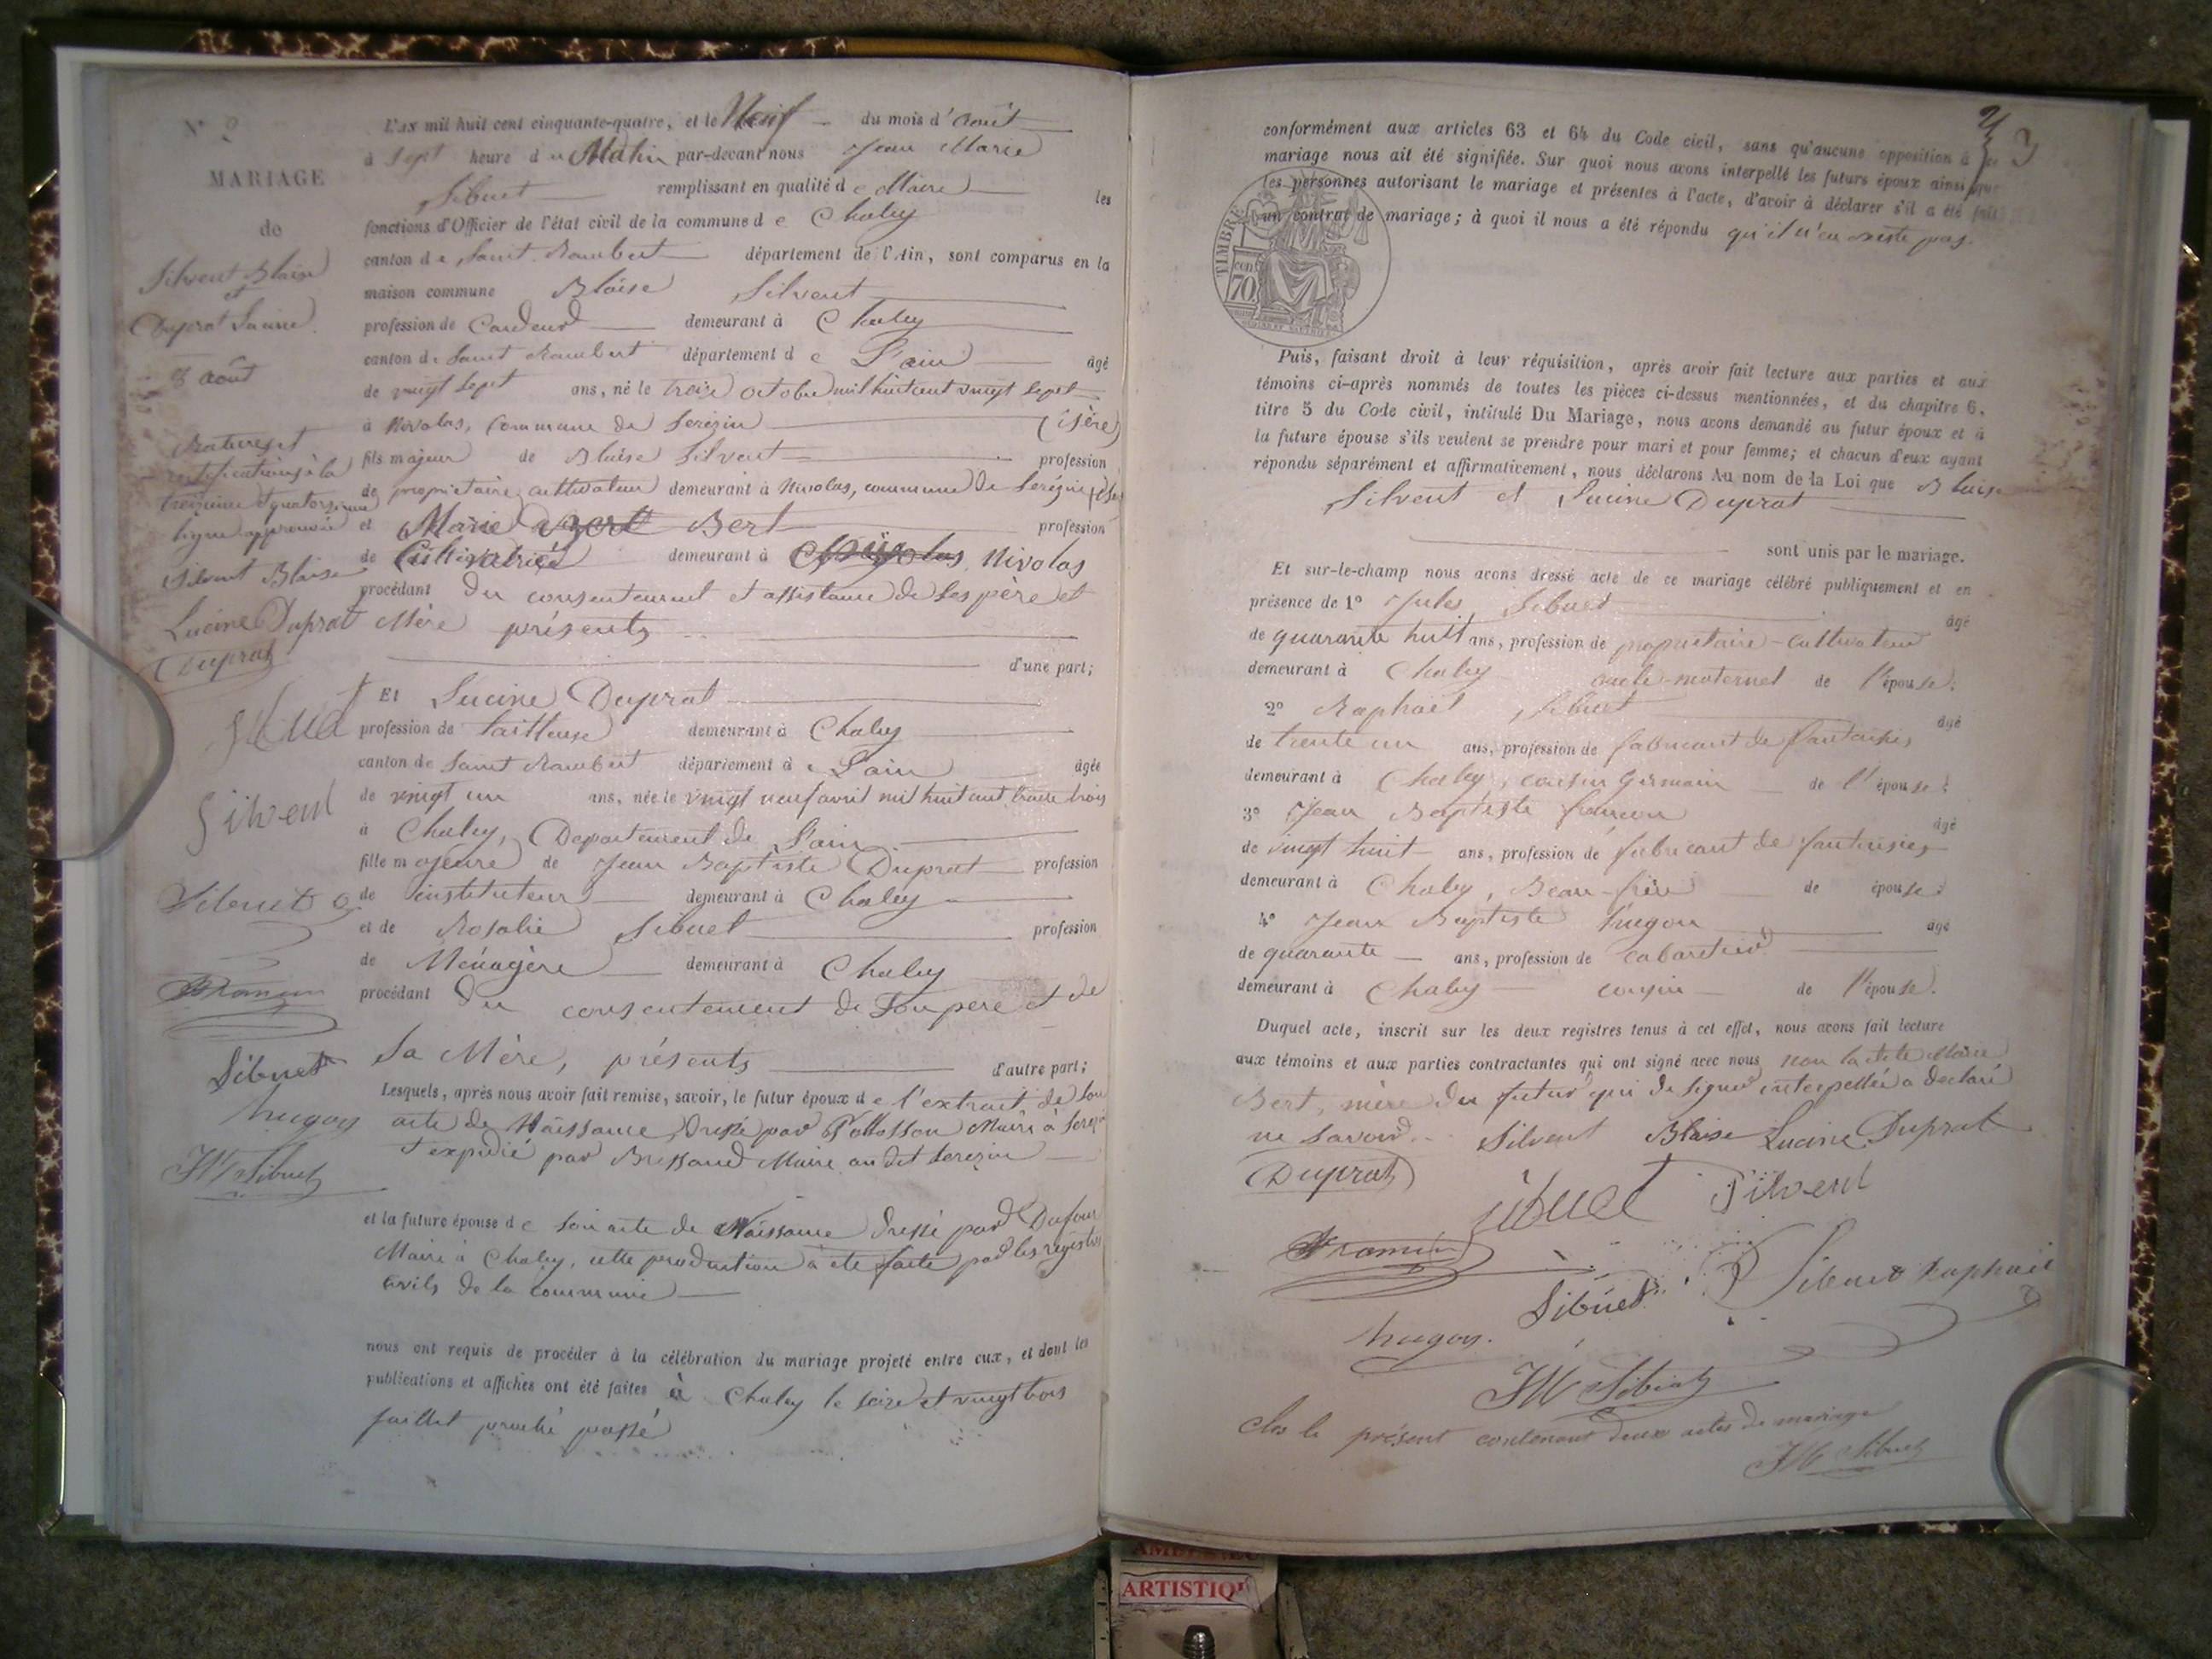 N° 2
MARIAGE
de
Silvent Blaise
et
Duprat Lucine
8 août
Ratures et
rectifications à la
treizième et quatorzième
ligne approuvée
Silvent Blaise
Lucine Duprat
Duprat
Sibuet
Silvent
Sibuet
Framin
Sibuet
hugon
JM Sibuet
L'AN mil huit cent cinquante-quatre, et le Neuf du mois d'août
à Sept heure du Matin par-devant nous Jean Marie
Sibuet remplissant en qualité de Maire les
fonctions d'Officier de l'état civil de la commune de Chaley
canton de Saint Rambert département de l'Ain, sont comparus en la
maison commune Blaise Silvent
profession de Cardeur demeurant à Chaley
canton de Saint Rambert département de L'ain âgé
de vingt sept ans, né le treize octobre mil huit cent vingt sept
à Nivolas, Commune de Serezin (isère)
fils majeur de Blaise Silvent profession
de propriétaire cultivateur demeurant à Nivolas, commune de Serézin
et Marie Bert profession
de Cultivatrice demeurant à Nivolas
procédant du consentement et assistance de ses père et
Mère présents
d'une part;
Et Lucine Duprat
profession de tailleuse demeurant à Chaley
canton de Saint Rambert département de L'ain âgée
de vingt un ans, née le vingt neuf avril mil huit cent trente trois
à Chaley, Département de L'ain
fille majeure de Jean Baptiste Duprat profession
de instituteur demeurant à Chaley
et de Rosalie Sibuet profession
de Ménagère demeurant à Chaley
procédant du consentement de Son père et de
Sa Mère, présents d'autre part;
Lesquels, après nous avoir fait remise, savoir, le futur époux de l'extrait de son
acte de Naissance, dressé par Maire à Serezin
et expédié par Brissaud Maire audit Serezin
et la future épouse de Son acte de Naissance dressé par Dufour
Maire à Chaley, cette production a été faite par les registres
civils de la commune
nous ont requis de procéder à la célébration du mariage projeté entre eux, et dont les
publications et affiches ont été faites à Chaley le seize et vingt trois
juillet proche passé
2
3
conformément aux articles 63 et 64 du Code civil, sans qu'aucune opposition à ce
mariage nous ait été signifiée. Sur quoi nous avons interpellé les futurs époux ainsi que
les personnes autorisant le mariage et présentes à l'acte, d'avoir à déclarer s'il a été fait
un contrat de mariage; à quoi il nous a été répondu qu'il n'en existe pas.
TIMBRE
70
Puis, faisant droit à leur réquisition, après avoir fait lecture aux parties et aux
témoins ci-après nommés de toutes les pièces ci-dessus mentionnées, et du chapitre 6,
titre 5 du Code civil, intitulé Du Mariage, nous avons demandé au futur époux et à
la future épouse s'ils veulent se prendre pour mari et pour femme; et chacun d'eux ayant
répondu séparément et affirmativement, nous déclarons Au nom de la Loi que Blaise
Silvent et Lucine Duprat
sont unis par le mariage.
Et sur-le-champ nous avons dressé acte de ce mariage célébré publiquement et en
présence de 1° Jules Sibuet âgé
de quarante huit ans, profession de propriétaire-cultivateur
demeurant à Chaley oncle-maternel de l'épouse;
2° Raphaël Sibuet âgé
de trente un ans, profession de fabricant de fantaisies
demeurant à Chaley, cousin germain de l'épouse;
3° Jean Baptiste âgé
de vingt huit ans, profession de fabricant de fantaisies
demeurant à Chaley, Beau-frère de épouse;
4° Jean Baptiste hugon âgé
de quarante ans, profession de cabaretier
demeurant à Chaley cousin de l'épouse.
Duquel acte, inscrit sur les deux registres tenus à cet effet, nous avons fait lecture
aux témoins et aux parties contractantes qui ont signé avec nous non la dite Marie
Bert, mère du futur qui de signer interpellée a déclaré
ne savoir. Silvent Blaise Lucine Duprat
Duprat
Sibuet Silvent
Framin
Sibuet Sibuet Raphaël
hugon.
JM Sibuet
Clos le présent contenant deux actes de mariage
JM Sibuet
ARTISTIQ